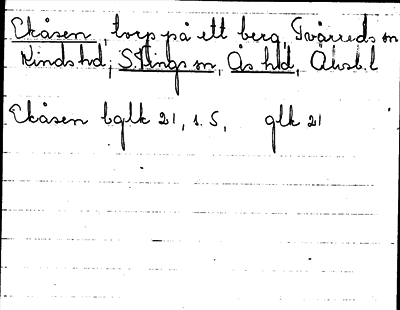 Ekåsen, torp på ett berg, Tvärreds sn
Kinds hd, S. Lings sn, Ås hd, Älvsb. l
Ekåsen bglk 21, 1. S, glk 21